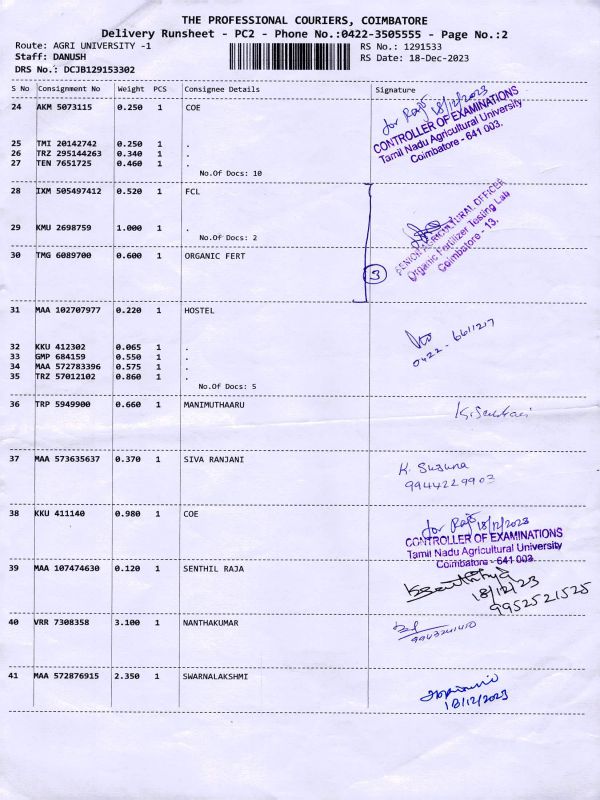 THE PROFESSIONAL COURIERS, COIMBATORE
Delivery Runsheet - PC2 - Phone No.:0422-3505555 - Page No.:2
Route: AGRI UNIVERSITY -1
RS No.: 1291533
Staff: DANUSH
RS Date: 18-Dec-2023
DRS No.: DCJB129153302
S No Consignment No Weight PCS Consignee Details Signature
24 AKM 5073115 0.250 1 COE
for 18/12/2023
CONTROLLER OF EXAMINATIONS
Tamil Nadu Agricultural University
Coimbatore - 641 003.
25 TMI 20142742 0.250 1 .
26 TRZ 295144263 0.340 1 .
27 TEN 7651725 0.460 1 .
No.Of Docs: 10
28 IXM 505497412 0.520 1 FCL
SENIOR AGRICULTURAL OFFICER
Organic Fertilizer Testing Lab
Coimbatore - 13.
29 KMU 2698759 1.000 1 .
No.Of Docs: 2
30 TMG 6089700 0.600 1 ORGANIC FERT
3
31 MAA 102707977 0.220 1 HOSTEL
0422 - 6611217
32 KKU 412302 0.065 1 .
33 GMP 684159 0.550 1 .
34 MAA 572783396 0.575 1 .
35 TRZ 57012102 0.860 1 .
No.Of Docs: 5
36 TRP 5949900 0.660 1 MANIMUTHAARU
37 MAA 573635637 0.370 1 SIVA RANJANI
K. Suguna
9944229903
38 KKU 411140 0.980 1 COE
for 18/12/2023
CONTROLLER OF EXAMINATIONS
Tamil Nadu Agricultural University
Coimbatore - 641 003.
39 MAA 107474630 0.120 1 SENTHIL RAJA
18/12/23
9952521525
40 VRR 7308358 3.100 1 NANTHAKUMAR
41 MAA 572876915 2.350 1 SWARNALAKSHMI
18/12/2023